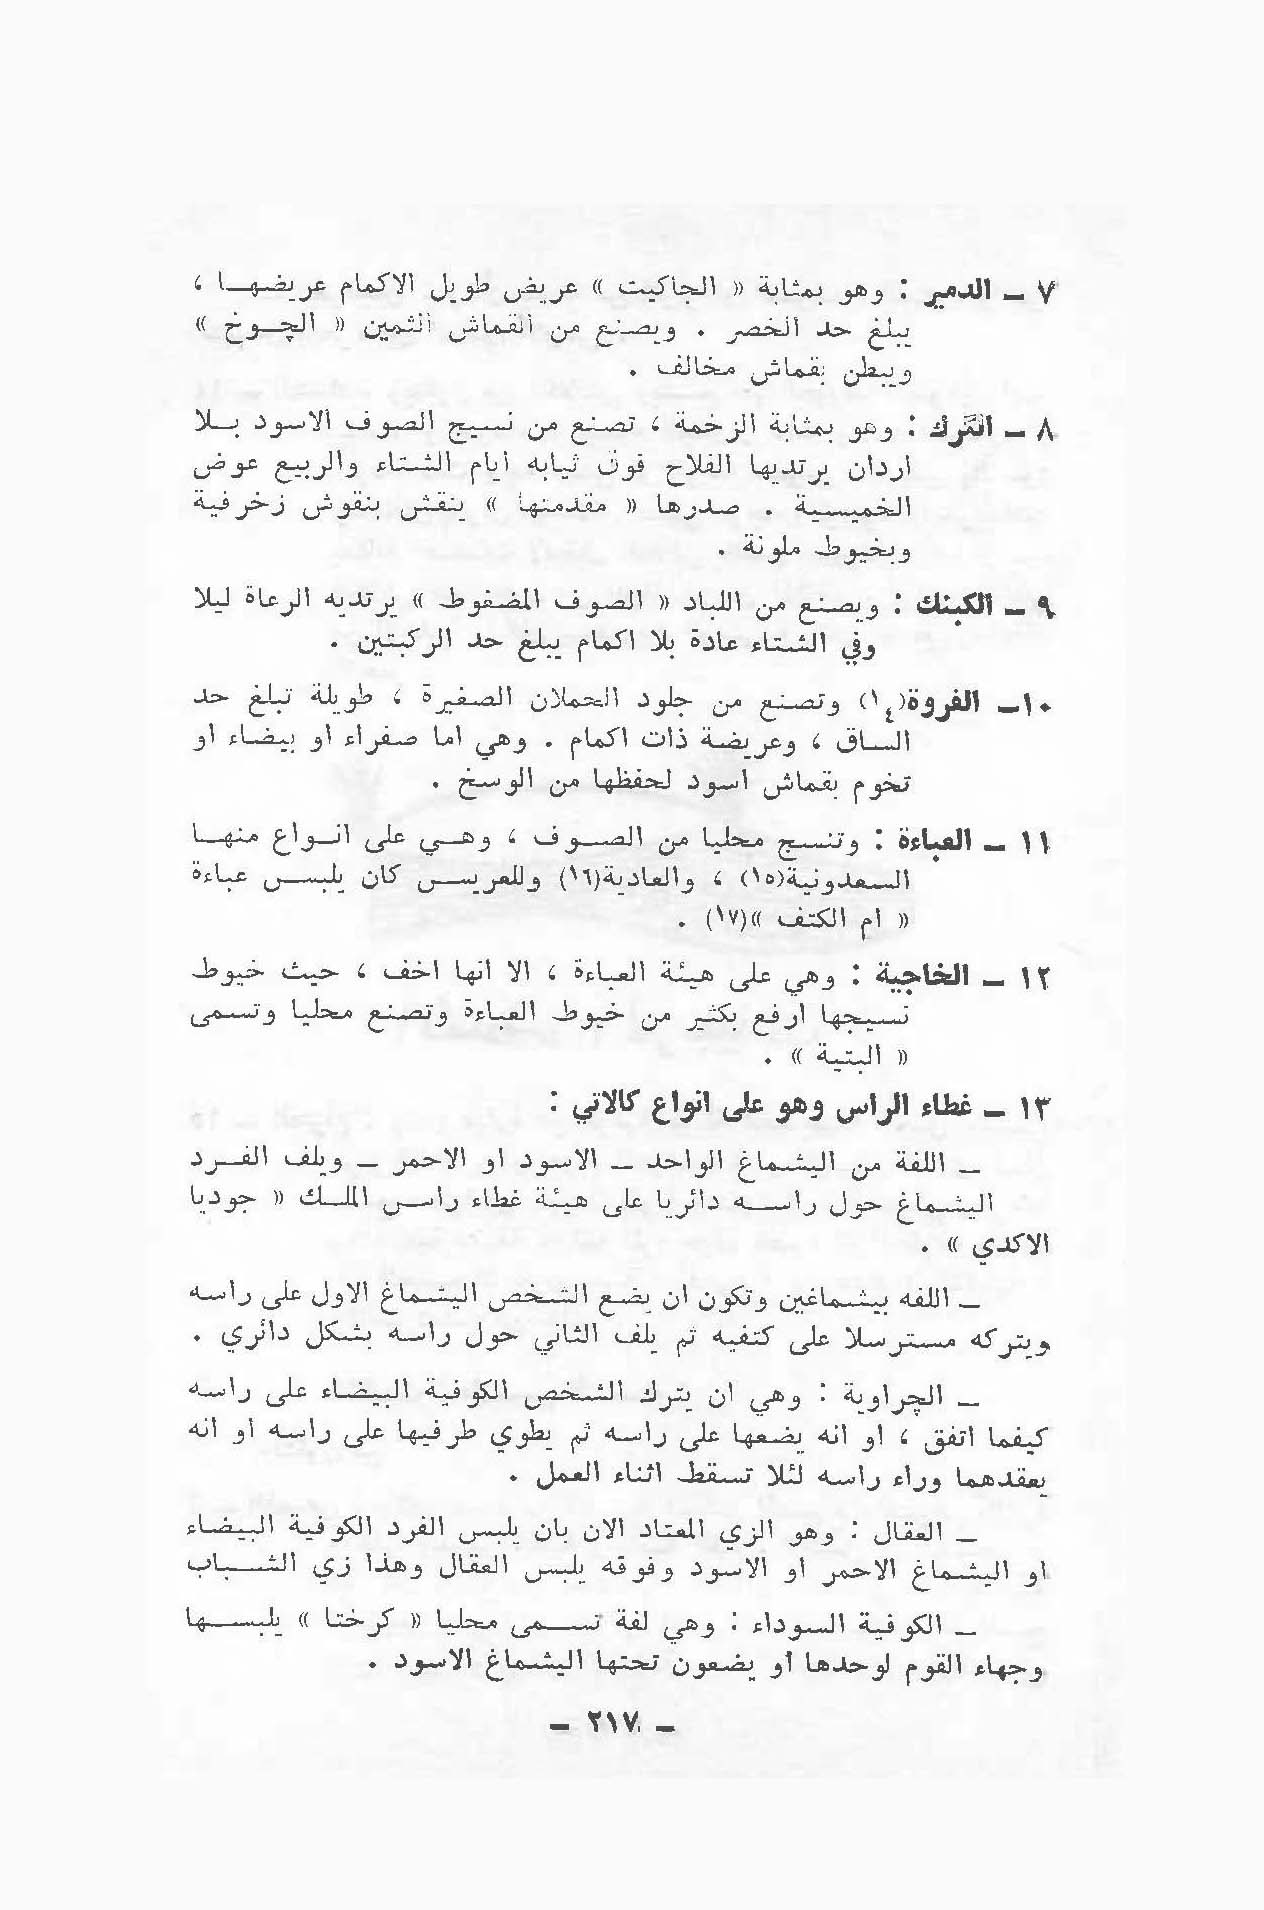 ٧ ــ الدمير : وهو بمثابة « الجاكيت » عريض طويل الاكمام عريضهـا ،
يبلغ حد الخصر . ويصنع من القماش الثمين « الچـوخ »
ويبطن بقماش مخالف .
٨ ــ التَرك : وهو بمثابة الزخمة ، تصنع من نسيج الصوف الاسود بـلا
اردان يرتديها الفلاح فوق ثيابه ايام الشتاء والربيع عوض
الخميسية . صدرها « مقدمتها » ينقش بنقوش زخرفية
وبخيوط ملونة .
٩ ــ الكبنك : ويصنع من اللباد « الصوف المضغوط » يرتديه الرعاة ليلا
وفي الشتاء عادة بلا اكمام يبلغ حد الركبتين .
١٠ــ الفروة(١٤) وتصنع من جلود الحملان الصغيرة ، طويلة تبلغ حد
الساق ، وعريضة ذات اكمام . وهي اما صفراء او بيضاء او
تخوم بقماش اسود لحفظها من الوسخ .
١١ ــ العباءة : وتنسج محليا من الصـوف ، وهـي على انـواع منهـا
السعدونية(١٥) ، والعادية(١٦) وللعريس كان يلبس عباءة
« ام الكتف »(١٧) .
١٢ ــ الخاجية : وهي على هيئة العباءة ، الا انها اخف ، حيث خيوط
نسيجها ارفع بكثير من خيوط العباءة وتصنع محليا وتسمى
« البتية » .
١٣ ــ غطاء الراس وهو على انواع كالاتي :
ــ اللفة من اليشماغ الواحد ــ الاسود او الاحمر ــ ويلف الفـرد
اليشماغ حول راسـه دائريا على هيئة غطاء راس الملـك « جوديا
الاكدي » .
ــ اللفه بيشماغين وتكون ان يضع الشخص اليشماغ الاول على راسه
ويتركه مسترسلا على كتفيه ثم يلف الثاني حول راسه بشكل دائري .
ــ الچراوية : وهي ان يترك الشخص الكوفية البيضاء على راسه
كيفما اتفق ، او انه يضعها على راسه ثم يطوي طرفيها على راسه او انه
يعقدهما وراء راسه لئلا تسقط اثناء العمل .
ــ العقال : وهو الزي المعتاد الان بان يلبس الفرد الكوفية البيضاء
او اليشماغ الاحمر او الاسود وفوقه يلبس العقال وهذا زي الشـباب
ــ الكوفية السوداء : وهي لفة تسـمى محليا « كرختا » يلبسـها
وجهاء القوم لوحدها أو يضعون تحتها اليشماغ الاسود .
ــ ٢١٧ ــ